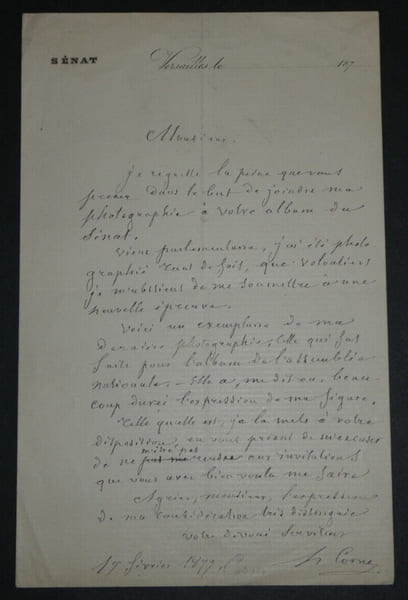 SÉNAT
Versailles, le 187
Monsieur
je regrette la peine que vous
prenez dans le but de joindre ma
photographie à votre album du
Sénat.
Vieux parlementaire, j'ai été photo
graphié tant de fois, que volontiers
je m'abstiens de me soumettre à une
nouvelle épreuve.
Voici un exemplaire de ma
dernière photographie, celle qui fut
faite pour l'album de l'assemblée
nationale. - Elle a, me dit on, beau-
coup durci l'expression de ma figure.
Telle quelle est, je la mets à votre
disposition, en vous priant de m'excuser
de ne m'être pas rendu aux invitations
que vous avez bien voulu me faire
Agréez, monsieur, l'expression
de ma considération très distinguée
votre dévoué serviteur
17 février 1879. Corne